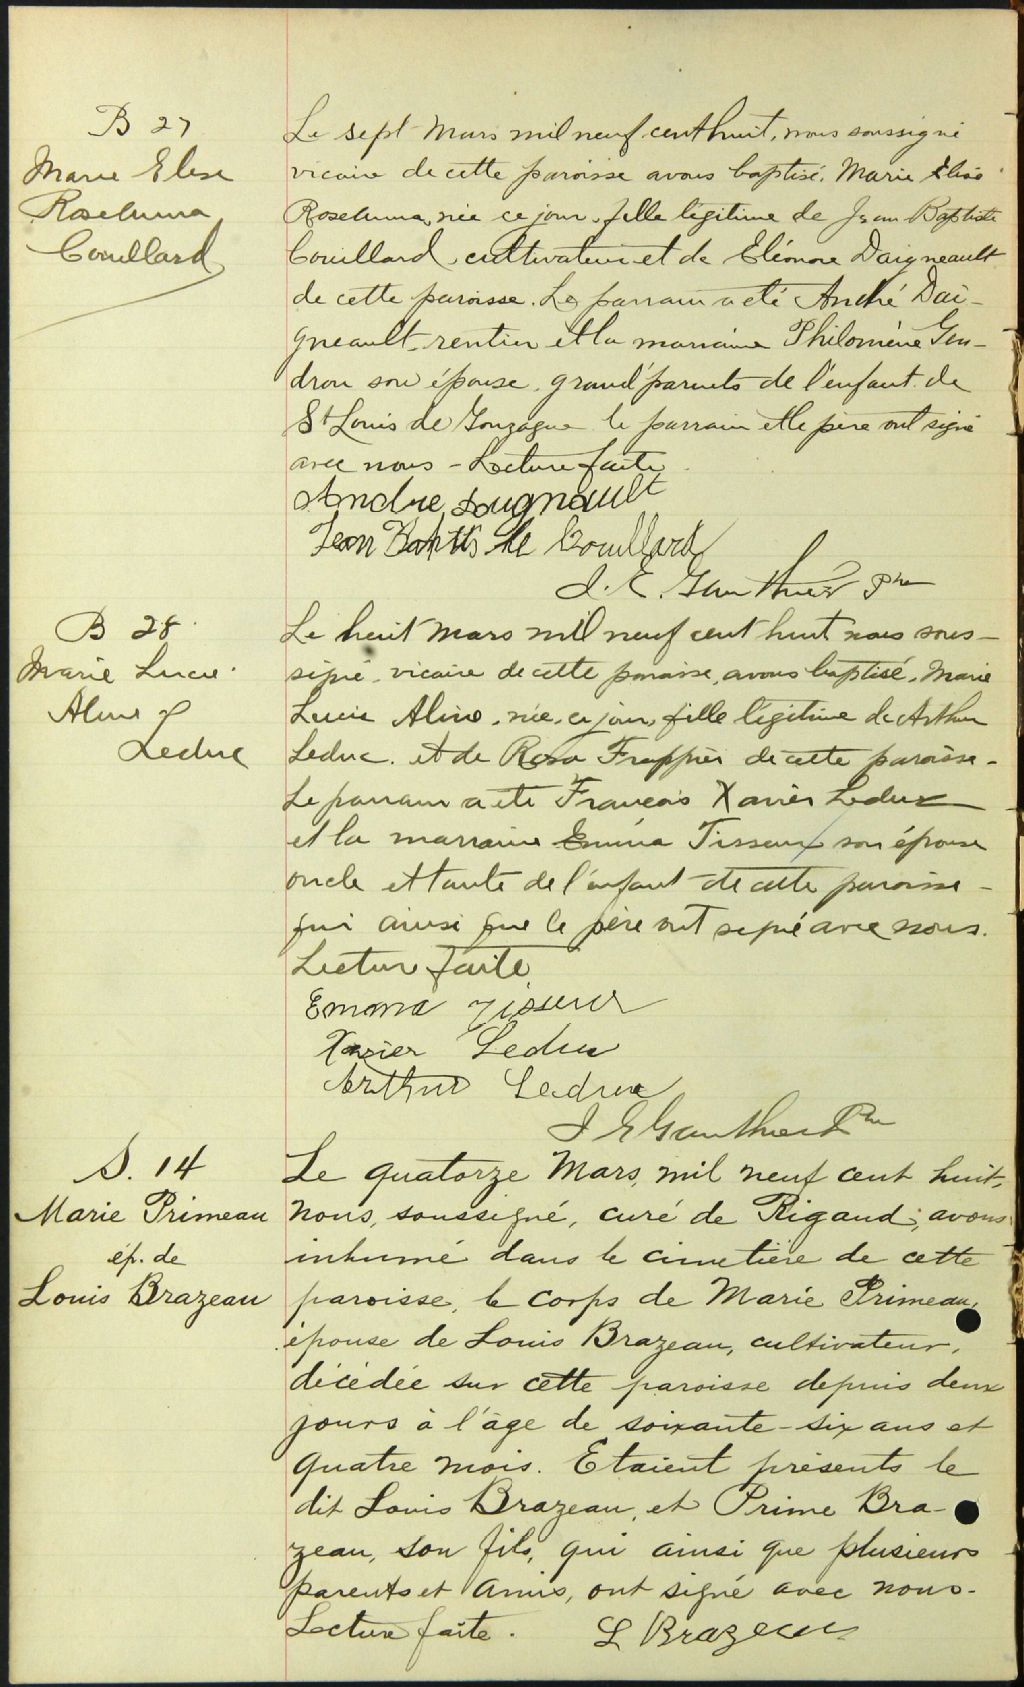 B 27
Marie Elise
Roselunna
Couillard
Le sept Mars mil neuf cent huit, nous soussigné
vicaire de cette paroisse avons baptisé, Marie Elise
Roselunna, née ce jour, fille légitime de Jean Baptiste
Couillard, cultivateur et de Eléonore Daigneault
de cette paroisse. Le parrain a été André Dai-
gneault, rentier et la marraine Philomène Gen-
dron son épouse, grand'parents de l'enfant de
St Louis de Gonzague le parrain et le père ont signé
avec nous - Lecture faite.
Andre Daugnault
Jean Couillard
J. E. Gauthier Ptre
B 28
Marie Lucie
Aline
Leduc
Le huit Mars mil neuf cent huit nous sous-
signé, vicaire de cette paroisse, avons baptisé, Marie
Lucie Aline, née, ce jour, fille légitime de Arthur
Leduc. et de Rosa Frappier de cette paroisse -
Le parrain a été François Xavier Leduc
et la marraine Emma Tisseur son épouse
oncle et tante de l'enfant de cette paroisse -
qui ainsi que le père ont signé avec nous.
Lecture faite
Emma Tisseur
Xavier Leduc
Arthur Leduc
J E Gauthier Ptre
S. 14
Marie Primeau
ép. de
Louis Brazeau
Le quatorze Mars, mil neuf cent huit,
nous, soussigné, curé de Rigaud, avons
inhumé dans le cimetière de cette
paroisse, le corps de Marie Primeau,
épouse de Louis Brazeau, cultivateur,
décédée sur cette paroisse depuis deux
jours à l'âge de soixante-six ans et
quatre mois. Etaient présents le
dit Louis Brazeau, et Prime Bra-
zeau, son fils, qui ainsi que plusieurs
parents et amis, ont signé avec nous.
Lecture faite. L Brazeau